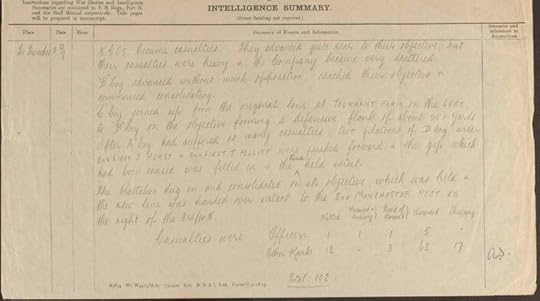 Instructions regarding War Diaries and Intelligence
Summaries are contained in F. S. Regs., Part II.
and the Staff Manual respectively. Title pages
will be prepared in manuscript.
INTELLIGENCE SUMMARY.
(Erase heading not required.)
Place
Date
Hour
Summary of Events and Information
Remarks and
references to
Appendices
became casualties. They advanced quite near to their objective, but
their casualties were heavy & the Company became very scattered
B Coy advanced without much opposition, reached their objective &
commenced consolidating.
C Coy joined up from the original line at TOURNANT FARM on the LEFT
to B Coy on the objective forming a defensive flank of about 500 yards
After A Coy had suffered so many casualties two platoons of D Coy under
2nd LIEUT J HURST & 2nd LIEUT T were pushed forward & the gap which
had been caused was filled in & the line held intact.
The Battalion dug in and consolidated on its objective, which was held &
the new line was handed over intact to the 2nd MANCHESTER REGT on
the right of the
Casualties were
Killed
Wounded & Missing
Died of Wounds
Wounded
Missing
Officers 1 1 1 5 -
Other Ranks 12 - 3 62 17
Total: 102